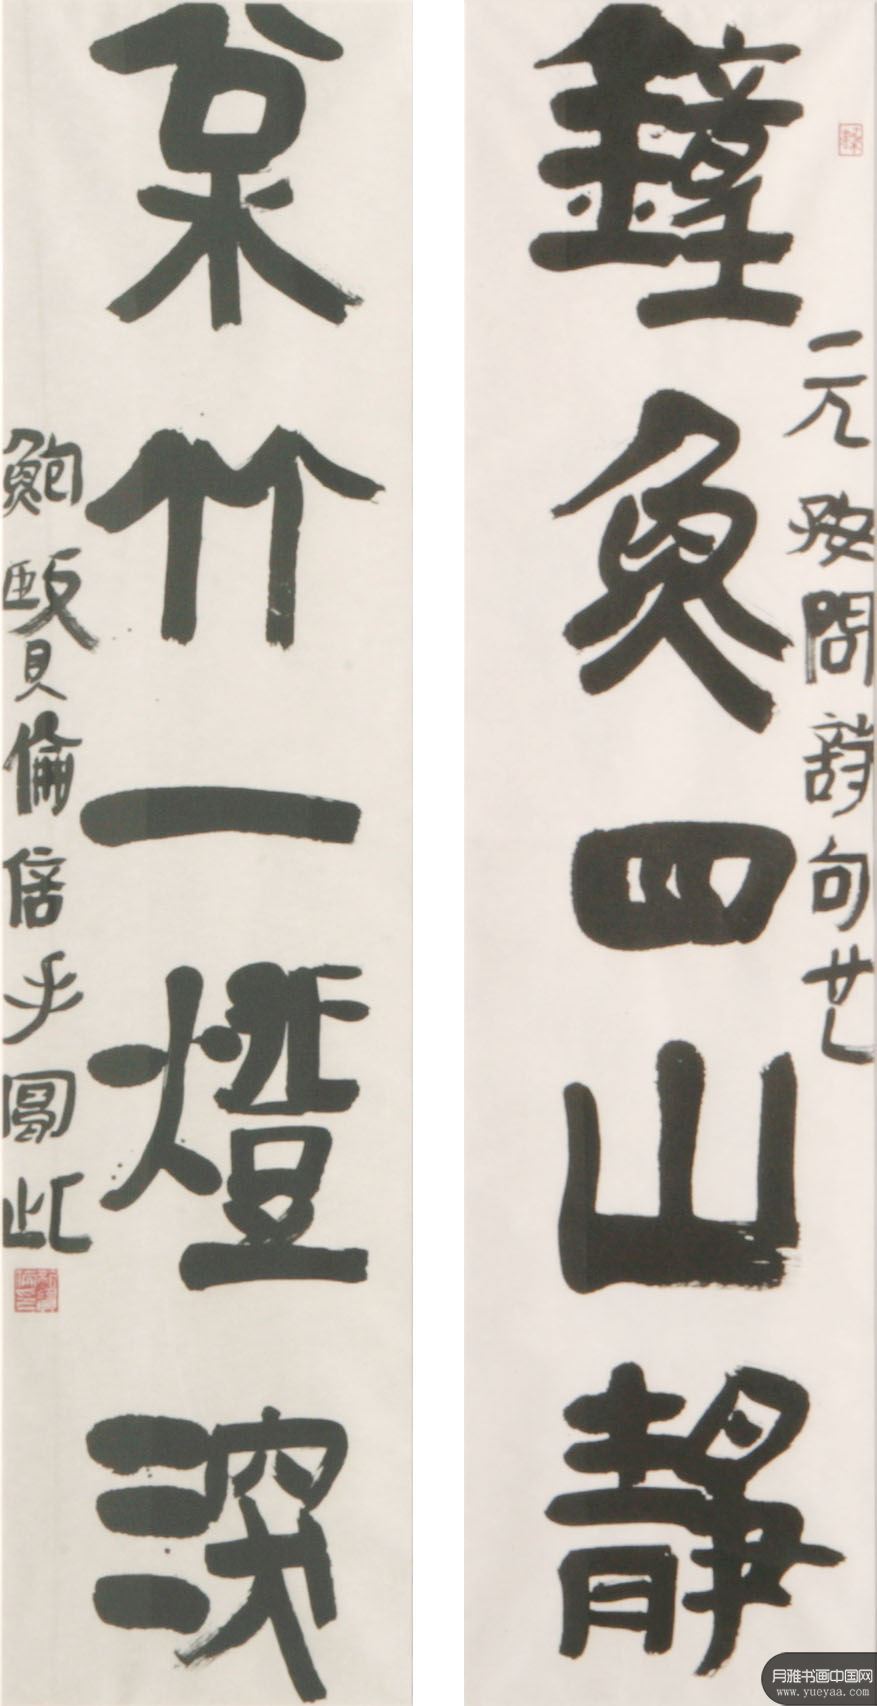 鐘魚四山靜
元好問詩句也
枀竹一燈深
鮑賢倫信手圖此
月雅书画中国网
www.yueyaa.com